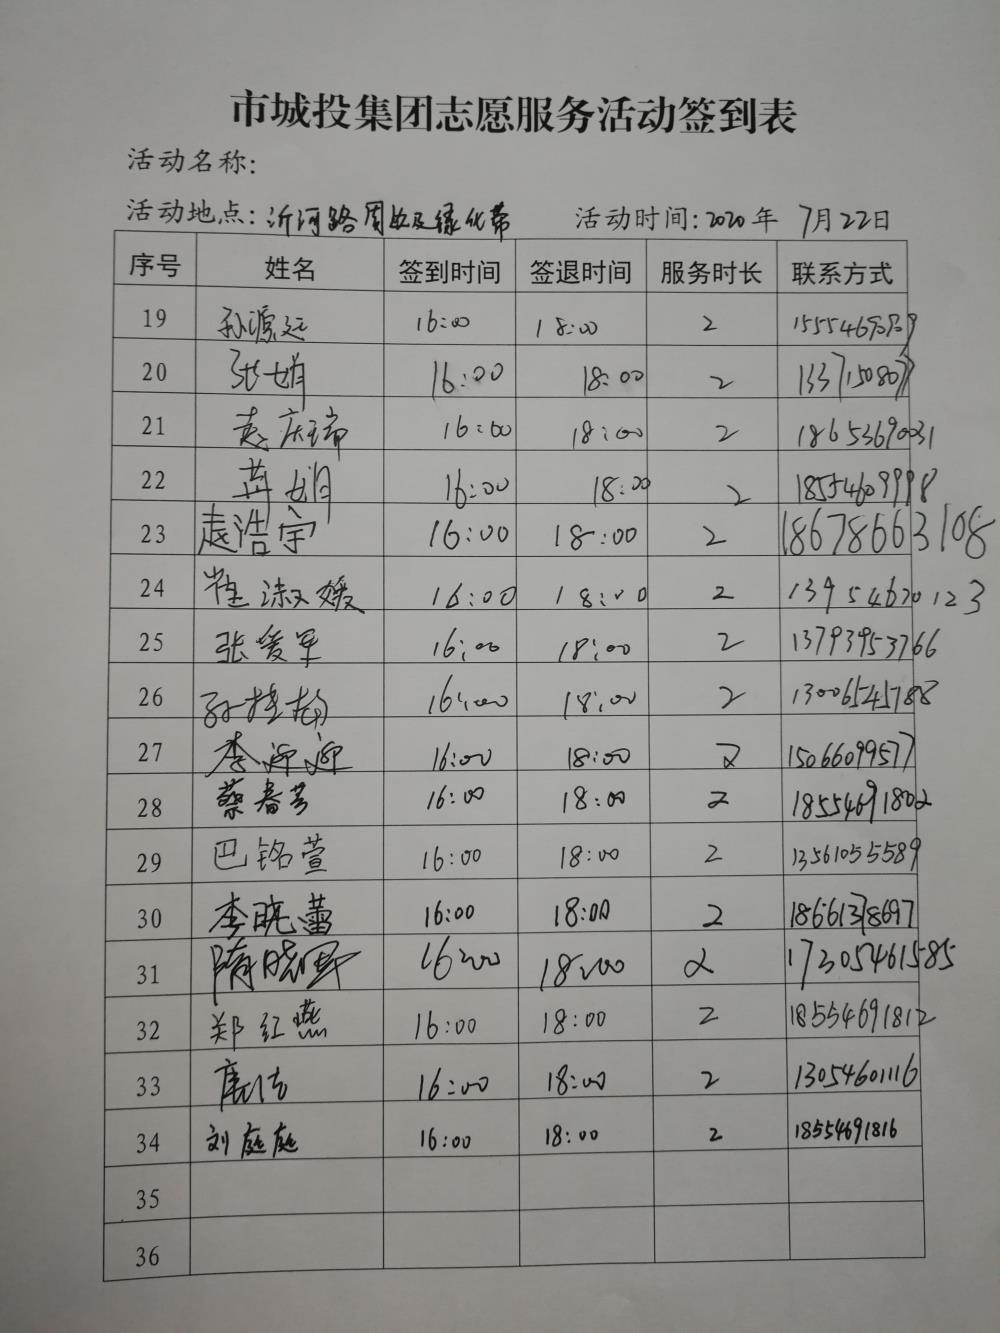 市城投集团志愿服务活动签到表
活动名称:
活动地点: 沂河路周边及绿化带 活动时间: 2020年 7月22日
序号 姓名 签到时间 签退时间 服务时长 联系方式
19 孙源远 16:00 18:00 2
20 张娟 16:00 18:00 2 13371508077
21 袁庆瑞 16:00 18:00 2 18653690031
22 黄娟 16:00 18:00 2 18554609998
23 袁浩宇 16:00 18:00 2 18678663108
24 崔淑媛 16:00 18:00 2 13954620123
25 张爱军 16:00 18:00 2 13793953766
26 16:00 18:00 2 13006545788
27 李迎迎 16:00 18:00 2 15066099577
28 蔡春芳 16:00 18:00 2 18554691802
29 巴铭萱 16:00 18:00 2 13561055589
30 李晓蕾 16:00 18:00 2 18661378697
31 隋晓军 16:00 18:00 2 17305461585
32 郑红燕 16:00 18:00 2 18554691812
33 唐洁 16:00 18:00 2 13054601116
34 刘庭庭 16:00 18:00 2 18554691816
35
36